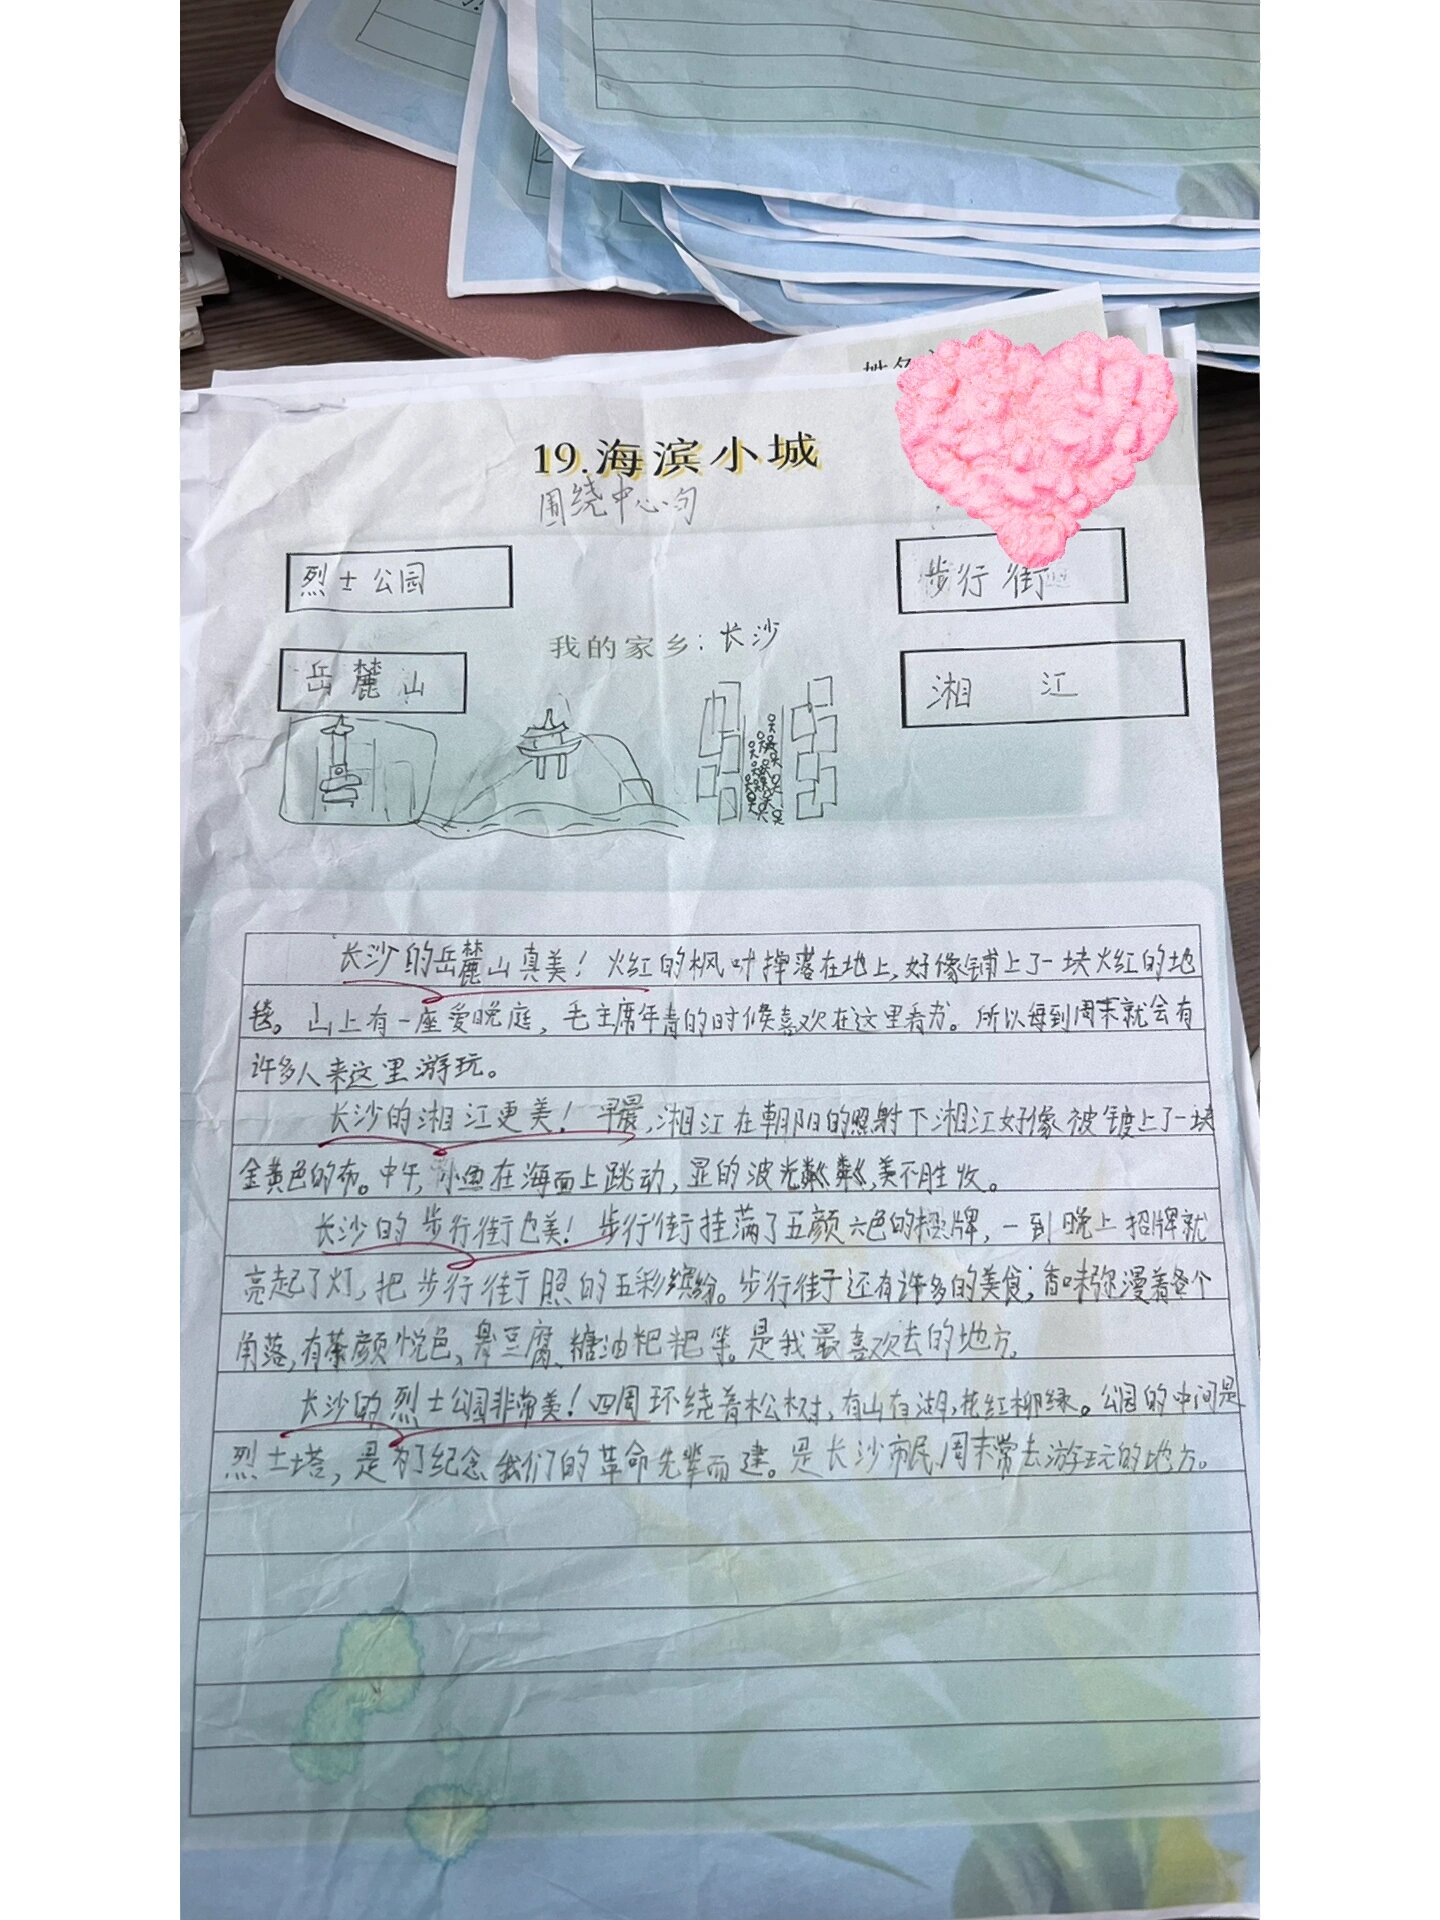 姓名
19.海滨小城
围绕中心句
烈士公园
步行街
我的家乡：长沙
岳麓山
湘江
长沙的岳麓山真美！火红的枫叶掉落在地上，好像铺上了一块火红的地
毯。山上有一座爱晚庭，毛主席年青的时候喜欢在这里看书。所以每到周末就会有
许多人来这里游玩。
长沙的湘江更美！早晨，湘江在朝阳的照射下湘江好像被镀上了一块
金黄色的布。中午，小鱼在海面上跳动，显的波光粼粼，美不胜收。
长沙的步行街也美！步行街挂满了五颜六色的招牌，一到晚上招牌就
亮起了灯，把步行街照的五彩缤纷。步行街还有许多的美食，香味弥漫着各个
角落，有茶颜悦色、臭豆腐、糖油粑粑等。是我最喜欢去的地方。
长沙的烈士公园非常美！四周环绕着松树，有山有湖，花红柳绿。公园的中间是
烈士塔，是为了纪念我们的革命先辈而建。是长沙市民周末常去游玩的地方。